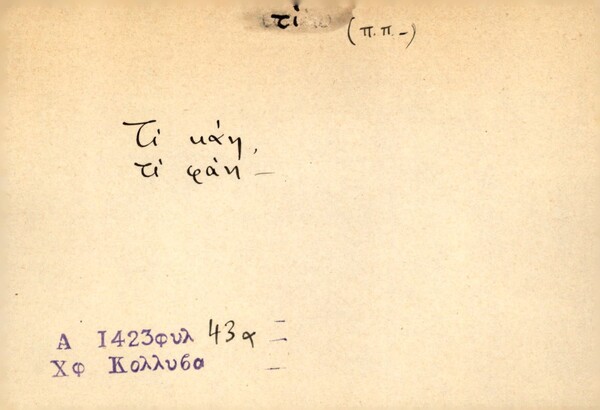 τί (π.π.-)
Τί κάη,
τί φάη —
Α 1423φυλ 43α
Χφ Κολλυβα